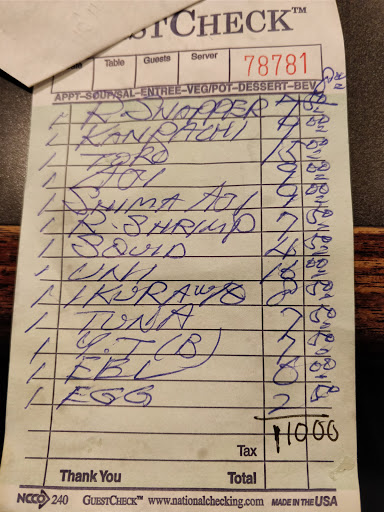 GUESTCHECK™
Table Guests Server
78781
APPT-SOUP/SAL-ENTREE-VEG/POT-DESSERT-BEV
1 R. SNAPPER
1 KANPACHI 9 00
1 TORO 15 00
1 AOI 9 00
1 SHIMA AOI 9 00
1 R. SHRIMP 7 50
1 SQUID 4 50
1 UNI 00
1 IKURA 8 50
1 TUNA 7 50
1 Y.T (B) 7 50
1 EBI 6 00
1 EGG 2 50
Tax 11000
Thank You Total
NCCO 240 GUESTCHECK™ www.nationalchecking.com MADE IN THE USA